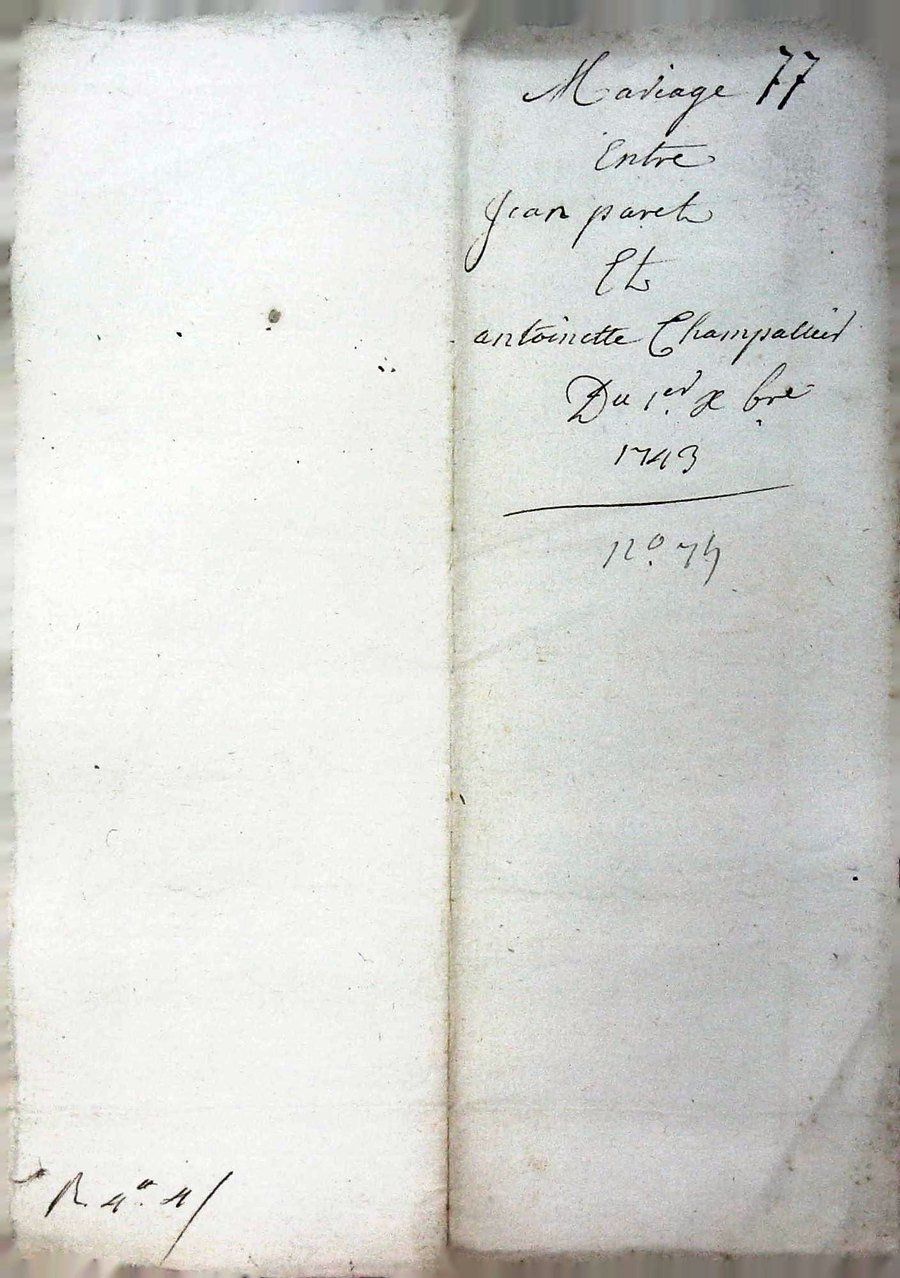 Mariage 77
Entre
Jean paret
Et
antoinette Champallier
Du 1er. Xbre
1743
no. 74